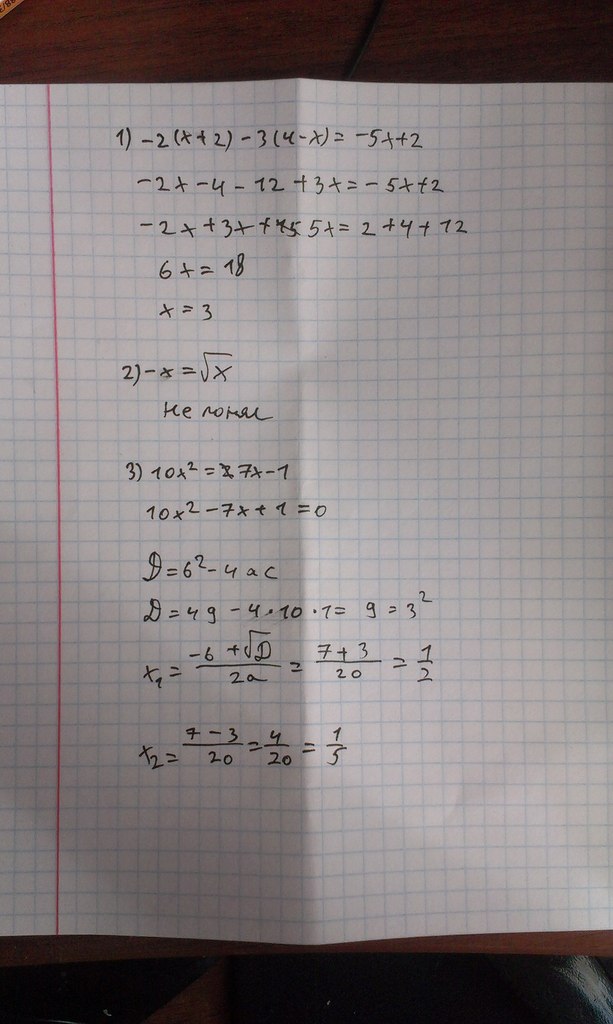 1) -2(x+2) -3(4-x) = -5x+2
-2x -4 - 12 +3x = -5x+2
-2x+3x+5x = 2+4+12
6x = 18
x = 3
2) -x = √x
Не понял
3) 10x² = 7x-1
10x² -7x+1 = 0
D = b² - 4ac
D = 49 - 4·10·1 = 9 = 3²
x₁ = (-b+√D)/2a = (7+3)/20 = 1/2
x₂ = (7-3)/20 = 4/20 = 1/5